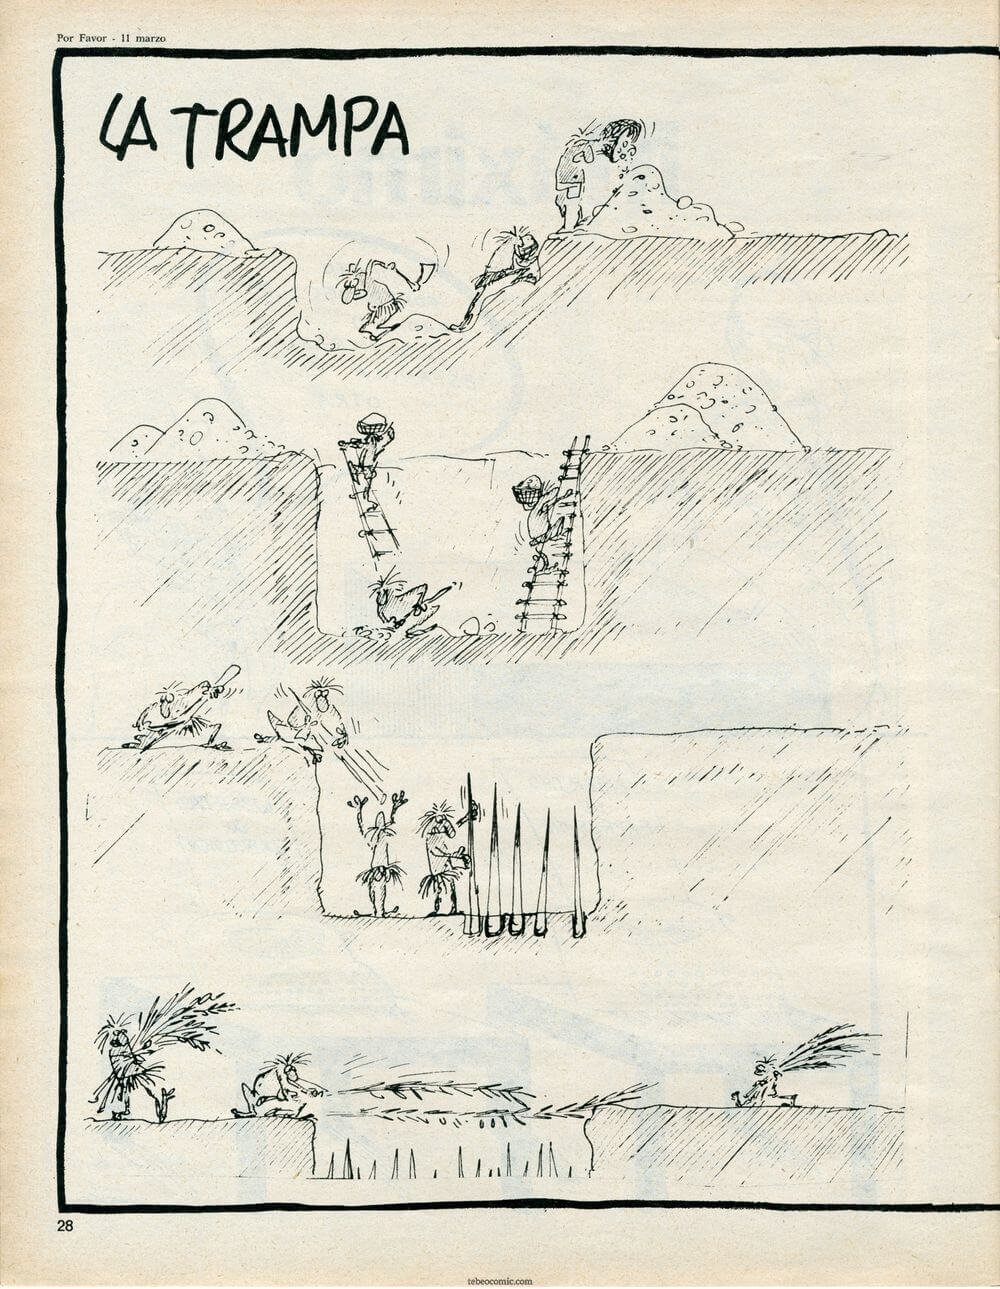 Por Favor - 11 marzo
LA TRAMPA
28
tebeocomic.com